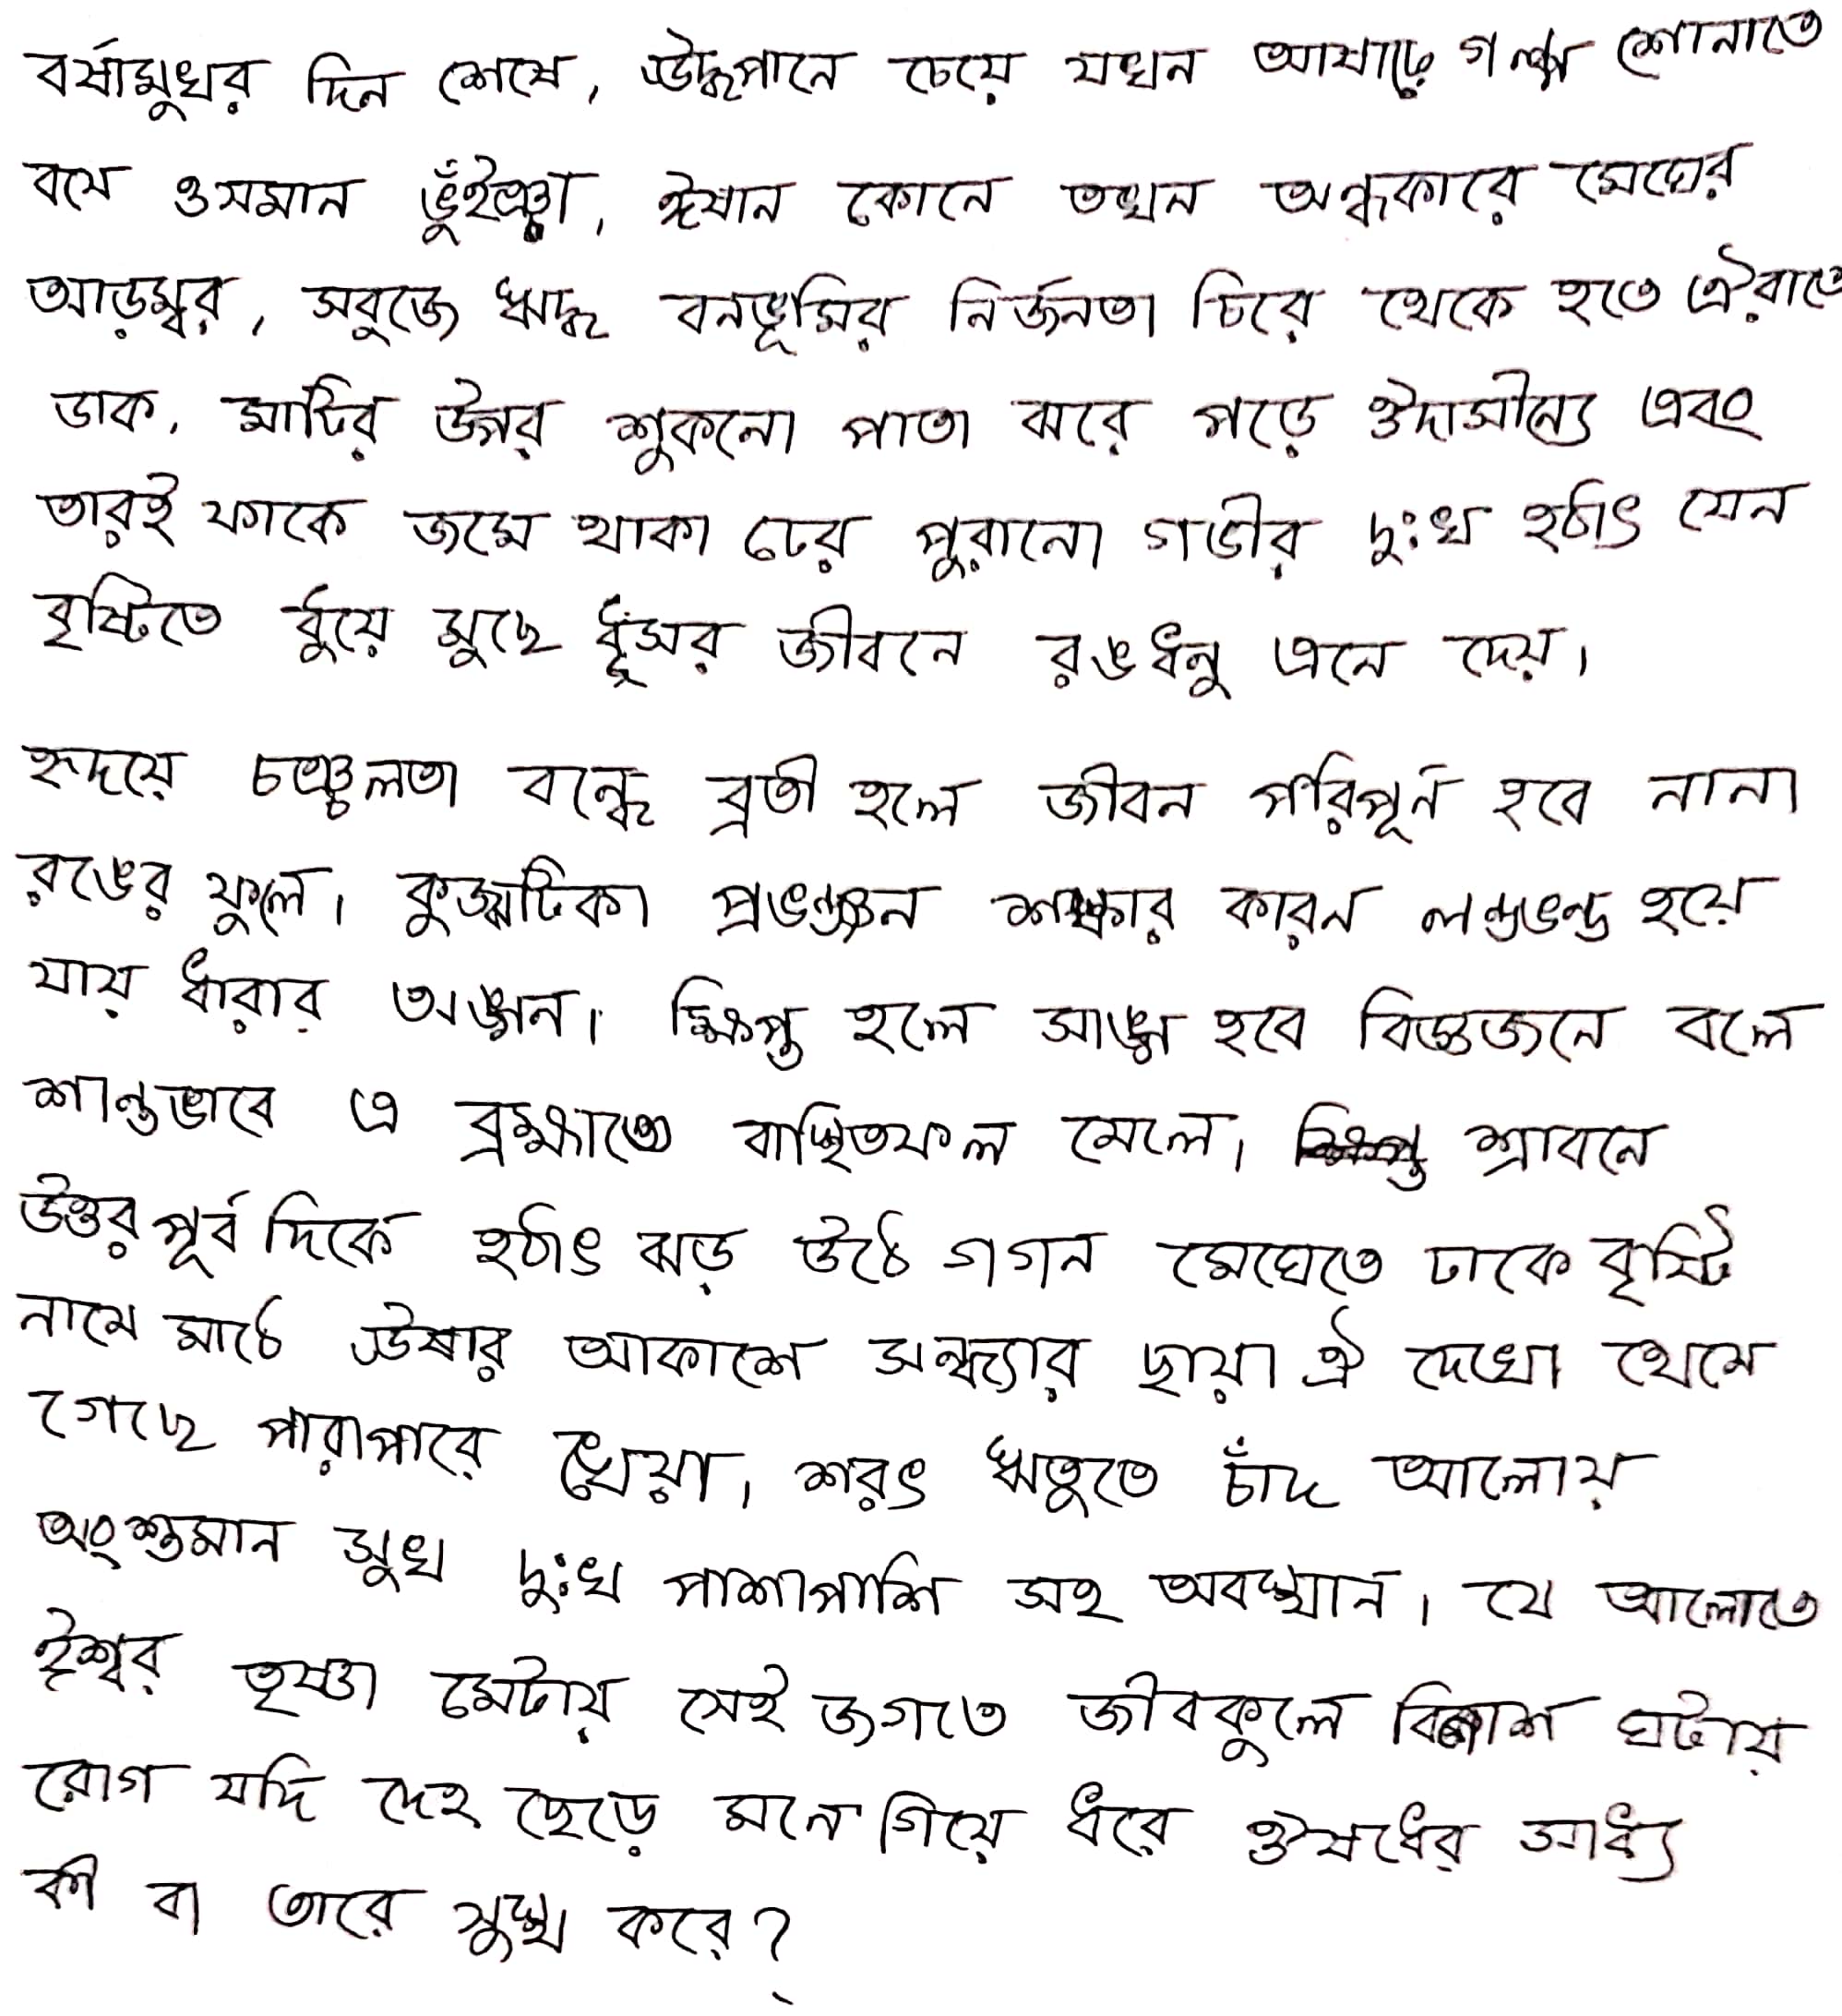 বর্ষামুখর দিন শেষে, উর্দ্ধপানে চেয়ে যখন আষাঢ়ে গল্প শোনাতে
বসে ওসমান ভুঁইঞা, ঈষান কোনে তখন অন্ধকারে মেঘের
আড়ম্বর, সবুজে ঋদ্ধ বনভূমির নির্জনতা চিরে থেকে হতে ঐরাতে
ডাক, মাটির উপর শুকনো পাতা ঝরে পড়ে ঔদাসীন্যে এবং
তারই ফাকে জমে থাকা ঢের পুরানো গভীর দুঃখ হঠাৎ যেন
বৃষ্টিতে ধুঁয়ে মুছে ধূসর জীবনে রঙধনু এনে দেয়।
হৃদয়ে চঞ্চলতা বন্ধে ব্রতী হলে জীবন পরিপূর্ন হবে নানা
রঙের ফুলে। কুজ্ঝটিকা প্রভঞ্জন শঙ্কার কারন লন্ডভন্ড হয়ে
যায় ধারার অঙ্গন। ক্ষিপ্ত হলে সাঙ্গ হবে বিজ্ঞজনে বলে
শান্তভাবে এ ব্রহ্মাণ্ডে বাঞ্ছিতফল মেলে। শ্রাবনে
উত্তর পূর্ব দিকে হঠাৎ ঝড় উঠে গগন মেঘেতে ঢাকে বৃষ্টি
নামে মাঠে উষার আকাশে সন্ধ্যার ছায়া ঐ দেখো থেমে
গেছে পারাপারে খেয়া। শরৎ ঋতুতে চাঁদ আলোয়
অংশুমান সুখ দুঃখ পাশাপাশি সহ অবস্থান। যে আলোতে
ঈশ্বর তৃষ্ণা মেটায় সেই জগতে জীবকুলে বিকাশ ঘটায়
রোগ যদি দেহ ছেড়ে মনে গিয়ে ধরে ঔষধের সাধ্য
কী বা তারে সুস্থ করে?